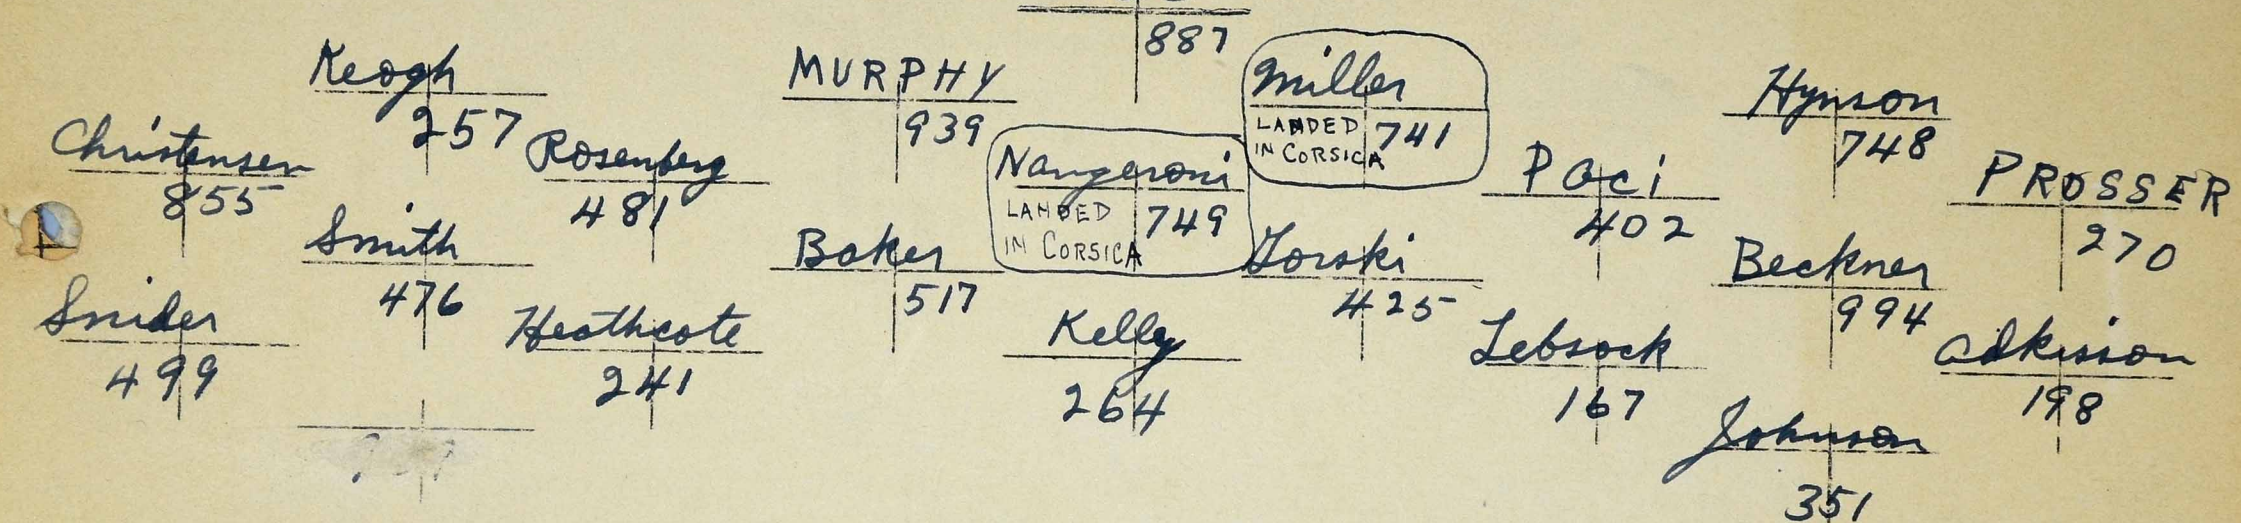 887
Keogh
257
MURPHY
939
Miller
LANDED IN CORSICA
741
Hynson
748
Christensen
855
Rosenberg
481
Nangeroni
LANDED IN CORSICA
749
Paci
402
PROSSER
270
Smith
476
Baker
517
Gorski
425
Beckner
994
Snider
499
Heathcote
241
Kelley
264
Lebsock
167
Adkisson
198
Johnson
351